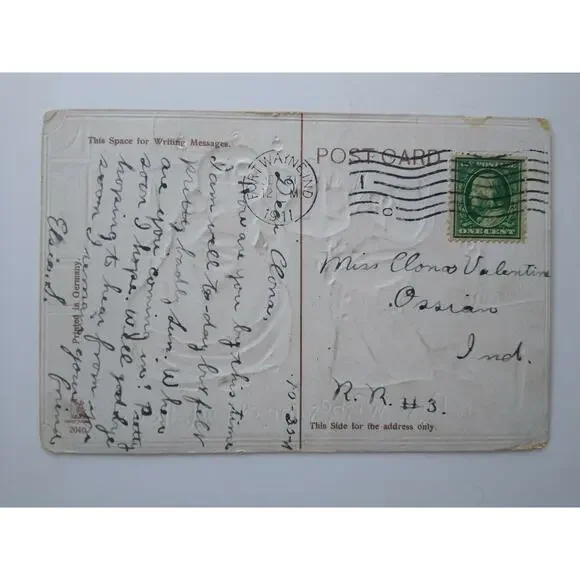 This Space for Writing Messages.
POST CARD
FORT WAYNE, IND
1911
1
ONE CENT
10-30-11
Dear Clona,
How are you by this time
I am well to-day but felt
rather bum. When
are you coming in? Pretty
soon I hope. Well good-bye
hoping to hear from you
soon I remain your friend
Elsie S.
Miss Clona Valentine
Ossian
Ind.
R. R. #3.
This Side for the address only.
Printed in Germany.
2040